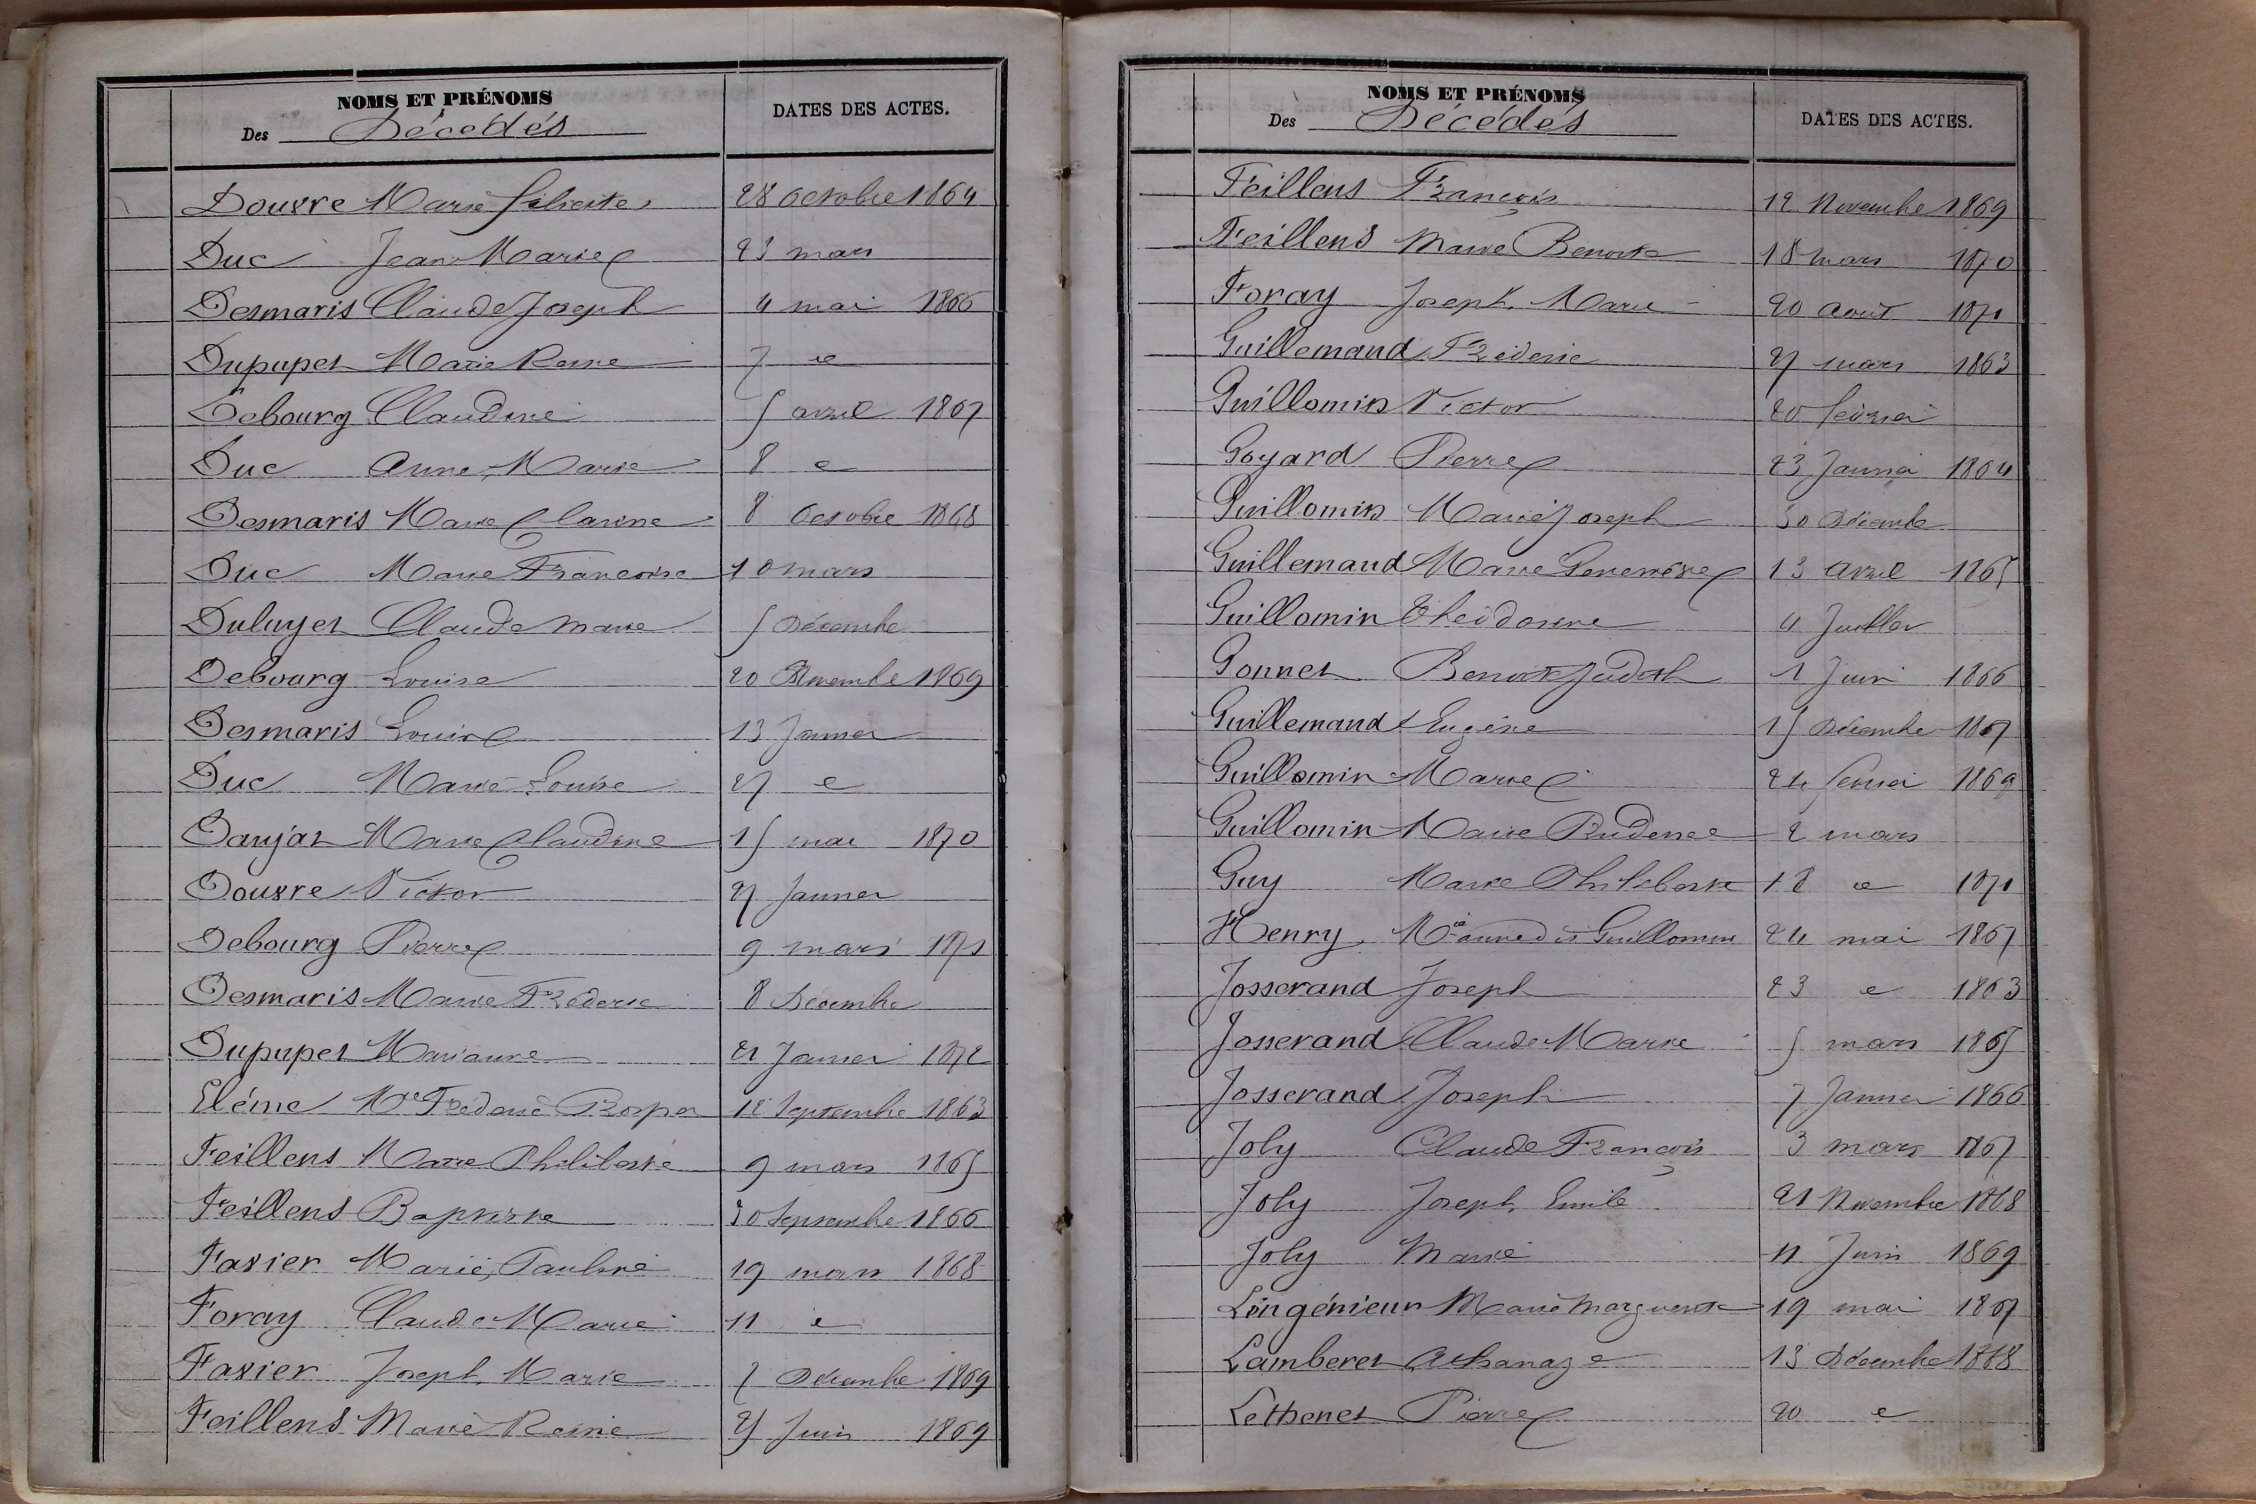 NOMS ET PRÉNOMS
Des Décédés
DATES DES ACTES.
Douvre Marie Silvestre 28 Octobre 1864
Duc Jean Marie 23 mars
Desmaris Claude Joseph 4 mai 1866
Dupupet Marie Reine 7 "
Debourg Claudine 5 avril 1867
Duc Anne Marie 8 "
Desmaris Marie Clarine 8 Octobre 1868
Duc Marie Françoise 10 mars
Duluyet Claude Marie 5 Décembre
Debourg Louise 20 Novembre 1869
Desmaris Louise 13 Janvier
Duc Marie Louise 27 "
Danjat Marie Claudine 15 mai 1870
Douvre Victor 27 Janvier
Debourg Pierre 9 mars 1871
Desmaris Marie Fréderic 8 Décembre
Dupupet Marianne 21 Janvier 1872
Eléme Mie Fréderic Prosper 12 Septembre 1863
Feillens Marie Philiberte 9 mars 1865
Feillens Baptiste 30 Septembre 1866
Favier Marie Pauline 19 mars 1868
Foray Claude Marie 11 "
Favier Joseph Marie 2 Décembre 1869
Feillens Marie Reine 25 Juin 1869
NOMS ET PRÉNOMS
Des Décédés
DATES DES ACTES.
Feillens François 12 Novembre 1869
Feillens Marie Benoite 18 mars 1870
Foray Joseph Marie 20 Aout 1871
Guillemaud Fréderic 27 mars 1863
Guillomin Victor 20 février
Goyard Pierre 23 Janvier 1864
Guillomin Marie Joseph 30 Décembre
Guillemaud Marie Geneviève 13 Avril 1865
Guillomin Théodorine 4 Juillet
Gonnet Benoite Judith 1 Juin 1866
Guillemaud Eugène 15 Décembre 1867
Guillomin Marie 24 fevrier 1869
Guillomin Marie Prudence 2 mars
Guy Marie Philiberte 18 " 1871
Henry Mie anne dit Guillomin 24 mai 1867
Josserand Joseph 23 " 1863
Josserand Claude Marie 5 mars 1865
Josserand Joseph 7 Janvier 1866
Joly Claude François 3 mars 1867
Joly Joseph Emile 21 Novembre 1868
Joly Marie 11 Juin 1869
Lingénieur Marie Marguerite 19 mai 1867
Lamberet Athanaze 13 Décembre 1868
Lethenet Pierre 20 "